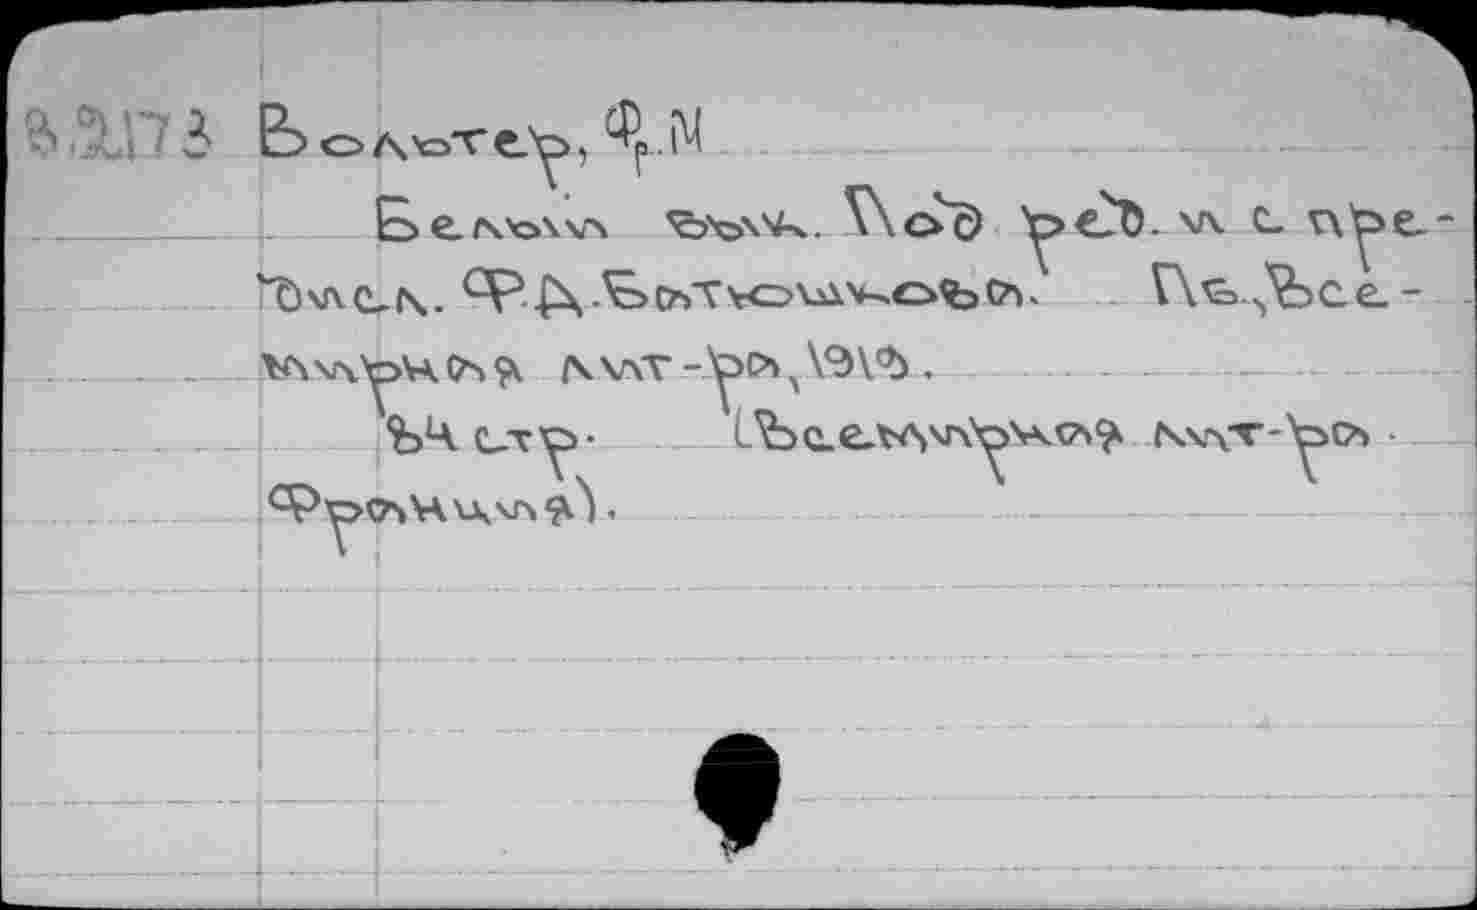 Вольтер, Фр.М
Белый бык. Под ред. и с пре-
дисл. Ф.Д.Батюшкова. Пб.,Все-
мирная лит-ра,1919.
84 стр. (Всемирная лит-ра.
Франция).